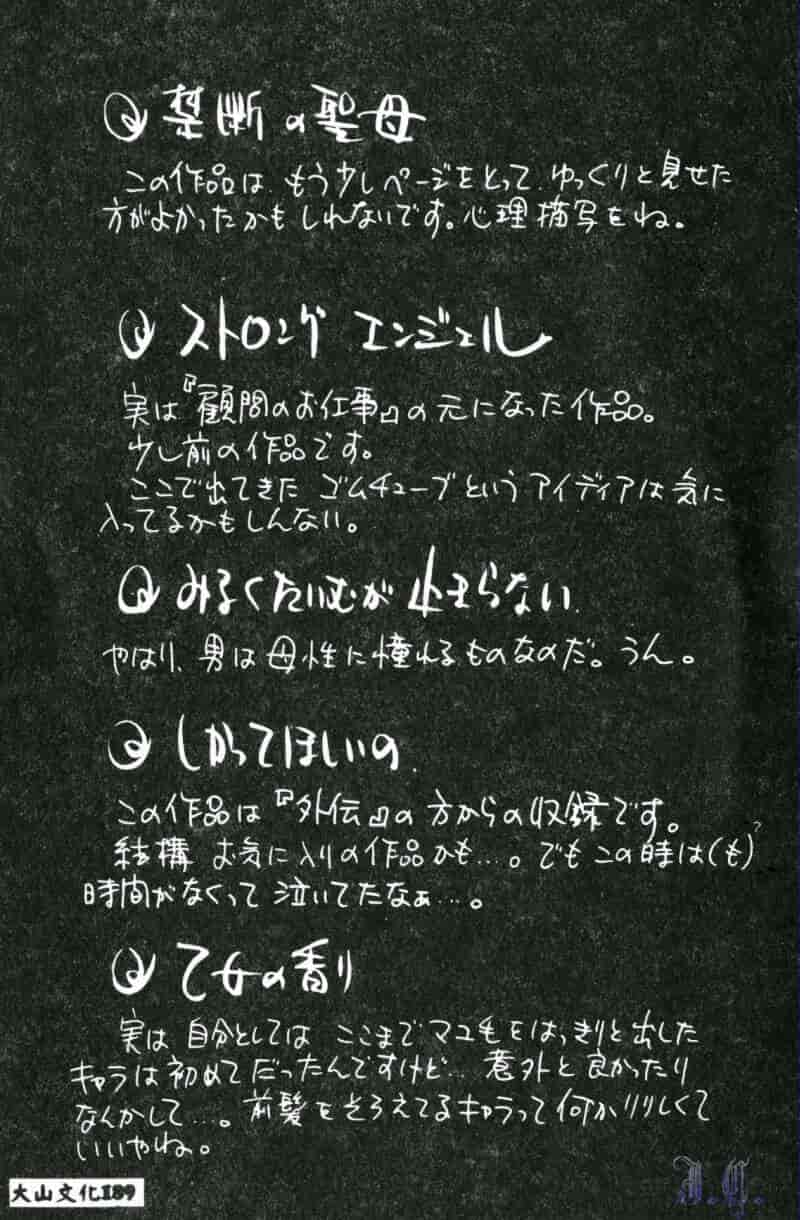 禁断の聖母
この作品は、もう少しページをとって、ゆっくりと見せた
方がよかったかもしれないです。心理描写をね。
ストロング エンジェル
実は『顧問のお仕事』の元になった作品。
少し前の作品です。
ここで出てきた ゴムチューブというアイディアは気に
入ってるかもしんない。
みるくたいむが止まらない
やはり、男は母性に憧れるものなのだ。うん。
しかってほしいの
この作品は『外伝』の方からの収録です。
結構 お気に入りの作品かも…。でもこの時は(も)?
時間がなくって泣いてたなぁ…。
乙女の香り
実は 自分としては ここまでマユ毛をはっきりと出した
キャラは初めてだったんですけど… 意外と良かったり
なんかして…。前髪をそろえてるキャラって何かりりしくて
いいやね。
大山文化I89
J.G.